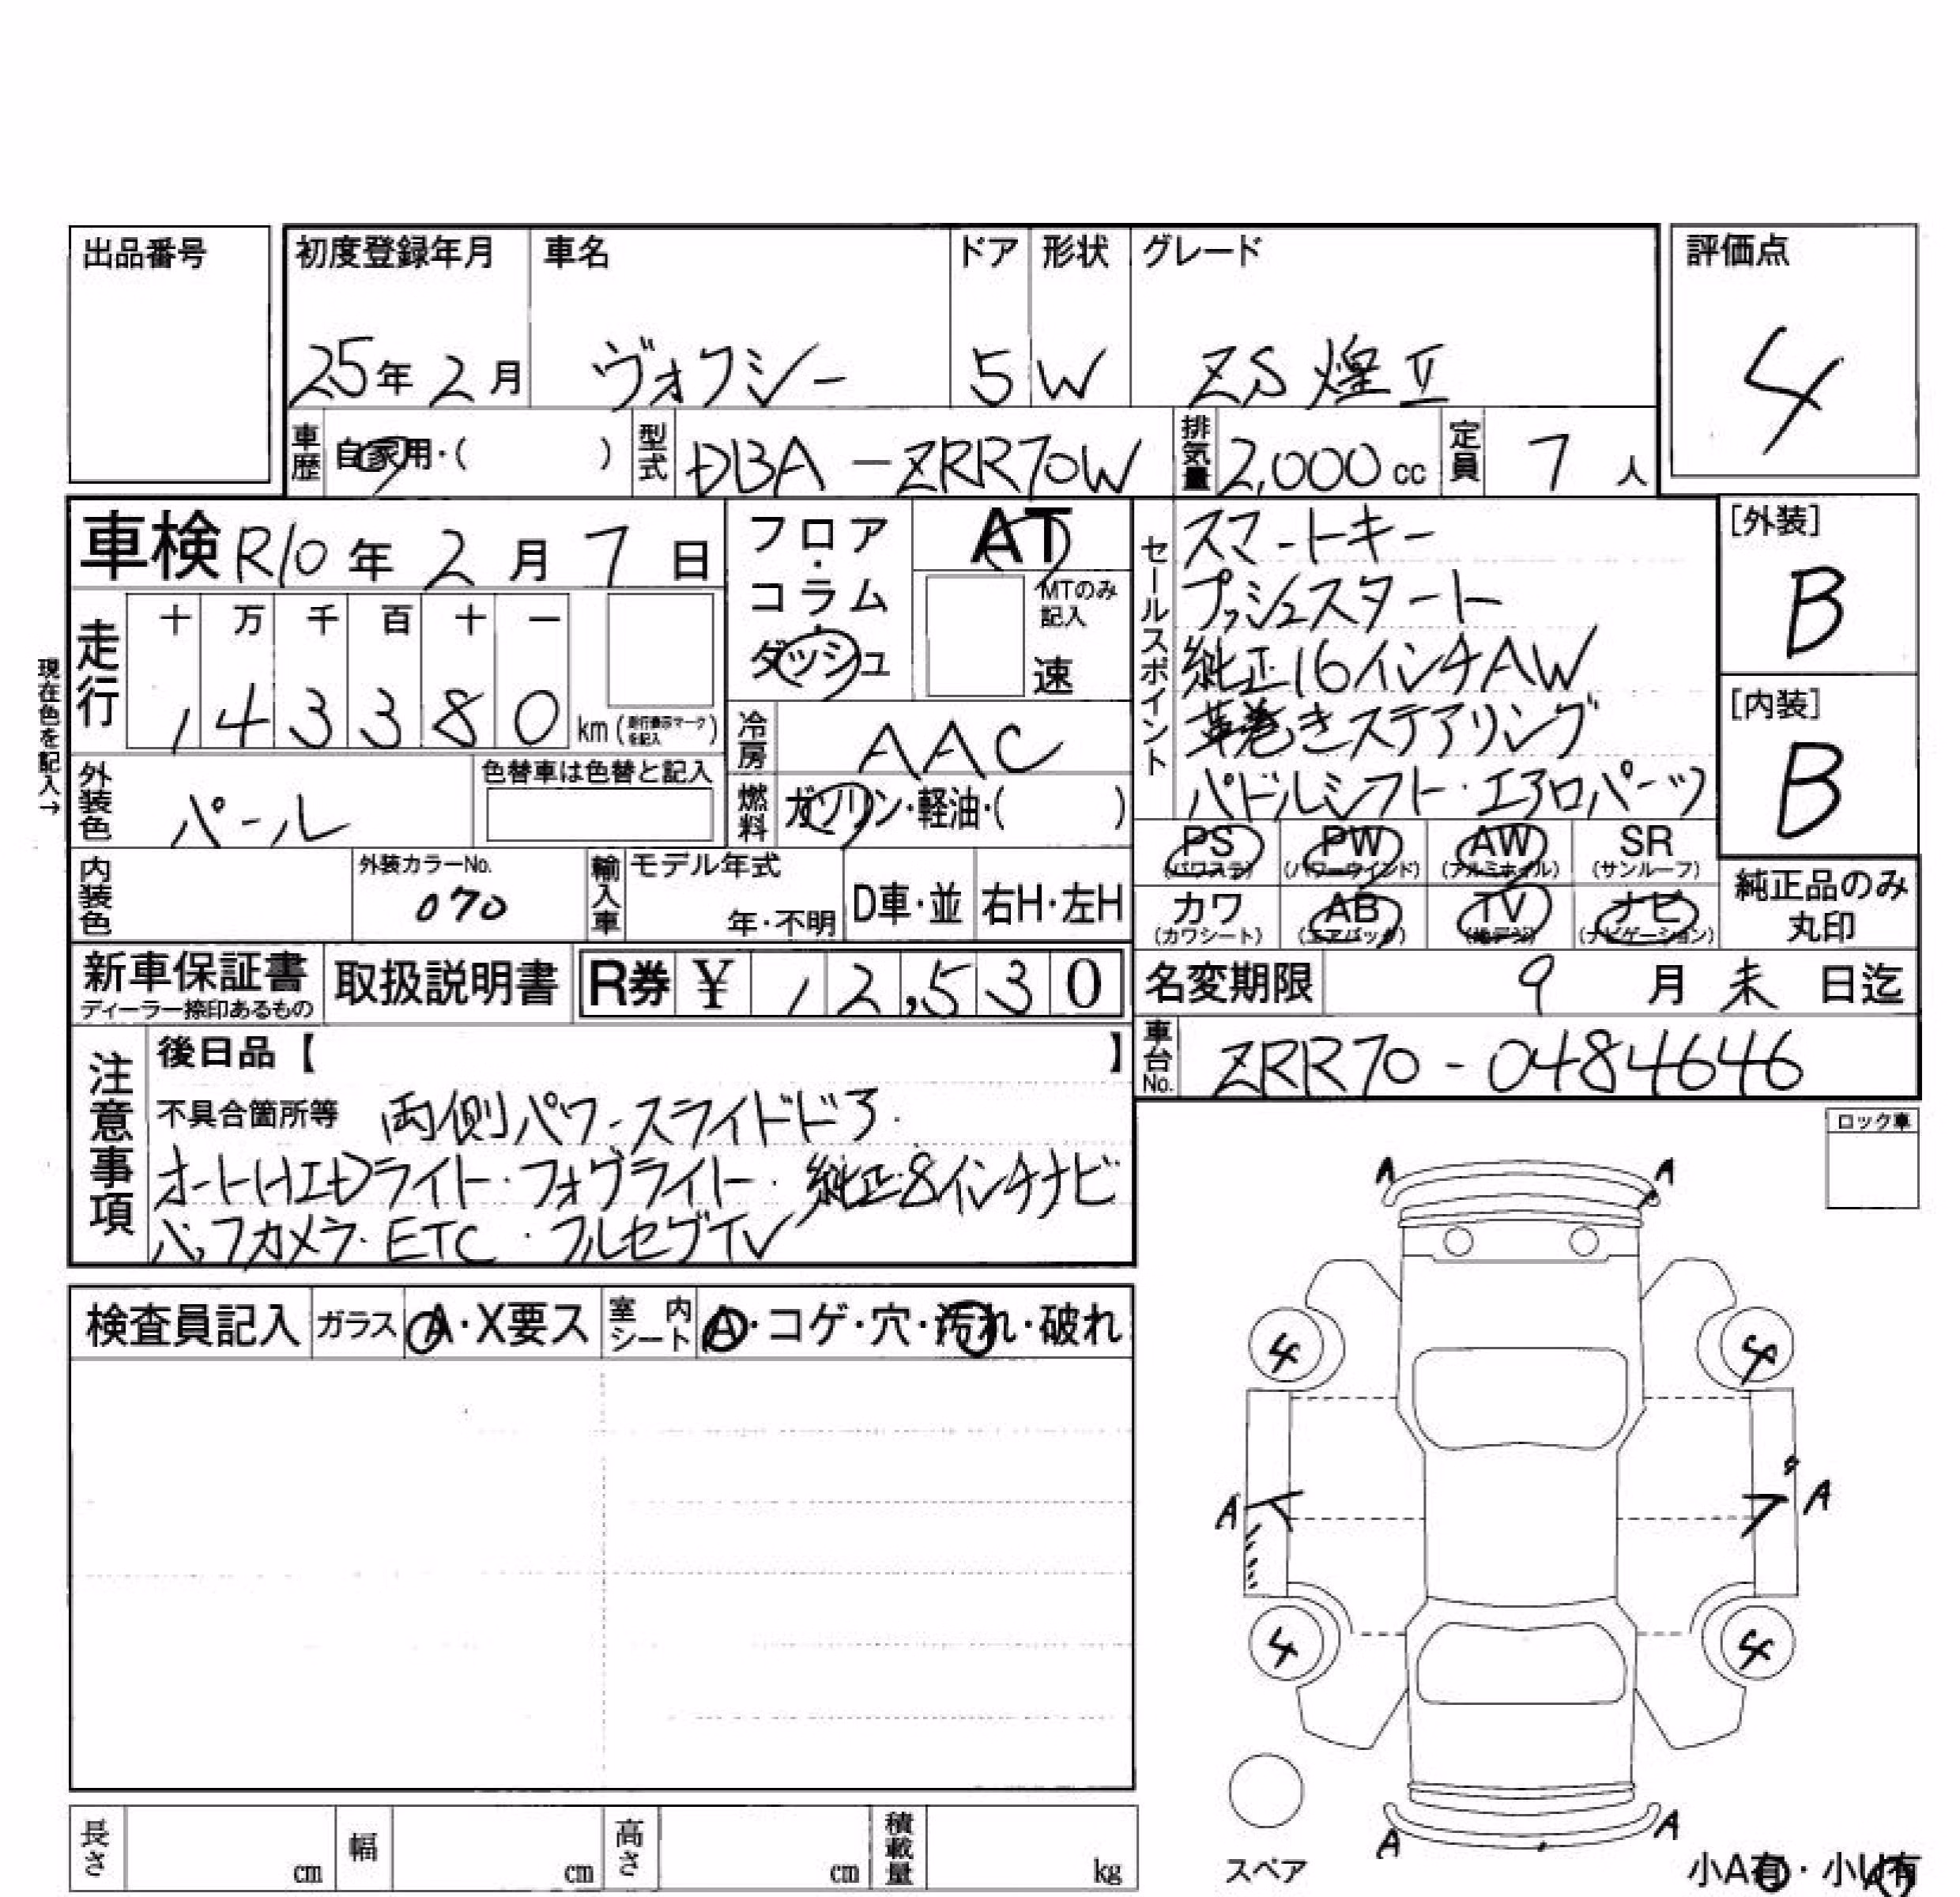 出品番号
初度登録年月 車名 ドア 形状 グレード 評価点
25年 2月 ヴォクシー 5 W ZS 煌Ⅱ 4
車歴 自家用・( ) 型式 DBA-ZRR70W 排気量 2,000 cc 定員 7 人
車検 R10年 2月 7日
フロア・コラム・ダッシュ
AT
MTのみ記入
速
セールスポイント
スマートキー
プッシュスタート
純正16インチAW
革巻きステアリング
パドルシフト・エアロパーツ
[外装]
B
[内装]
B
現在色を記入→
走行
十 万 千 百 十 一
1 4 3 3 8 0 km (走行表示マークを記入)
冷房 AAC
外装色 パール
色替車は色替と記入
燃料 ガソリン・軽油・( )
PS (パワステ) PW (パワーウインド) AW (アルミホイル) SR (サンルーフ)
カワ (カワシート) AB (エアバック) TV (地デジ) ナビ (ナビゲーション)
純正品のみ丸印
内装色
外装カラーNo.
070
輸入車 モデル年式
年・不明
D車・並 右H・左H
新車保証書
ディーラー捺印あるもの
取扱説明書
R券 ¥ 12,530
名変期限 9月 末 日迄
車台No. ZRR70-0484646
注意事項
後日品【 】
不具合箇所等 両側パワースライドドア・
オートHIDライト・フォグライト・純正8インチナビ
バックカメラ・ETC・フルセグTV
ロック車
検査員記入 ガラス A・X要ス 室内シート A・コゲ・穴・汚れ・破れ
A A
4 4
A A
4 4
A A
スペア
長さ cm 幅 cm 高さ cm 積載量 kg
小A有・小U有